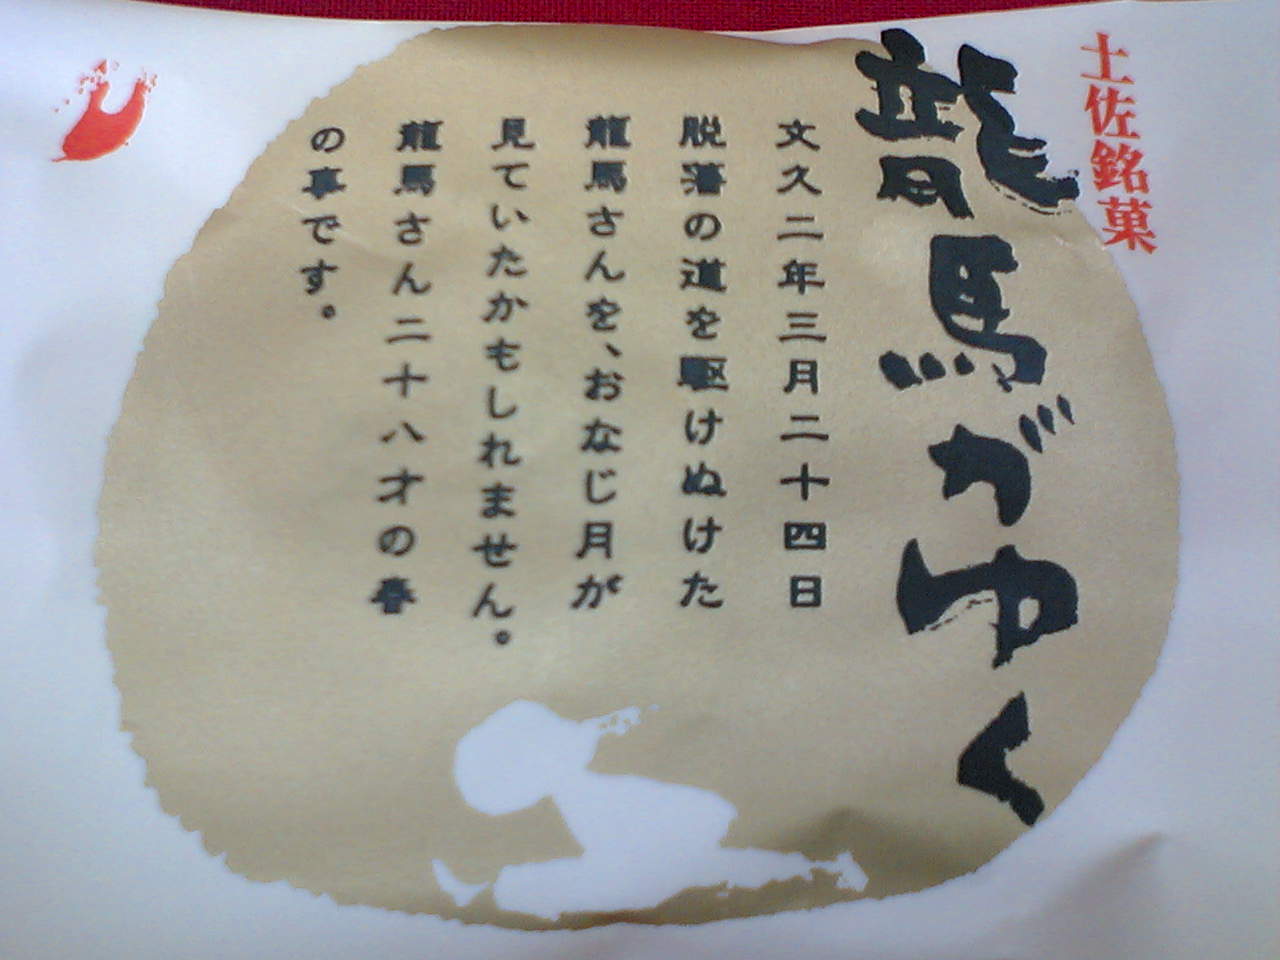 土佐銘菓
龍馬がゆく
文久二年三月二十四日
脱藩の道を駆けぬけた
龍馬さんを、おなじ月が
見ていたかもしれません。
龍馬さん二十八才の春
の事です。